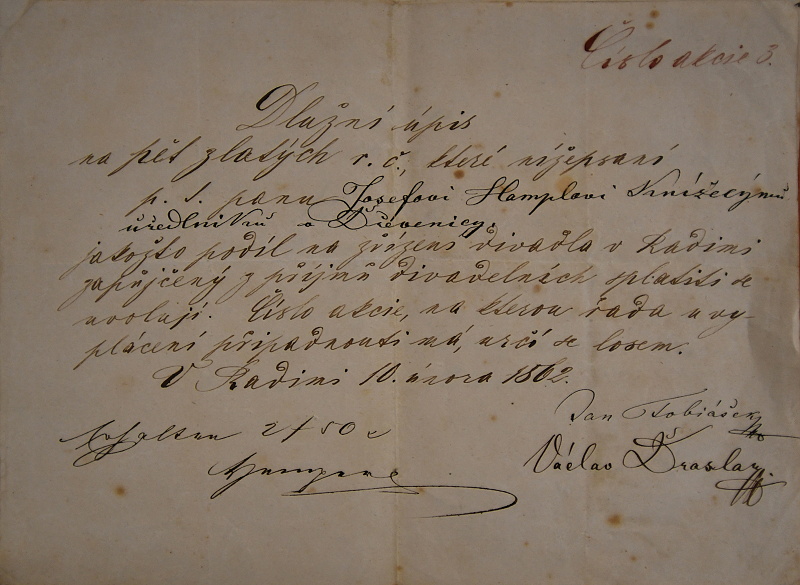 Číslo akcie 3.
Dlažní úpis
na pět zlatých r. č., které nížepsaní
p. t. panu Josefovi Hamplovi Knížecýmu
úředlníků v Dřevenicy.
jakožto podíl na zřízení divadla v Radimi
zapůjčený z příjmů divadelních splatiti se
uvolují. Číslo akcie, na kterou řada u vy-
plácení připadnouti má, určí se losem.
V Radimi 10. února 1862.
Jan Tobiášek
Erhalten 2 f 50 c
Václav Draslar